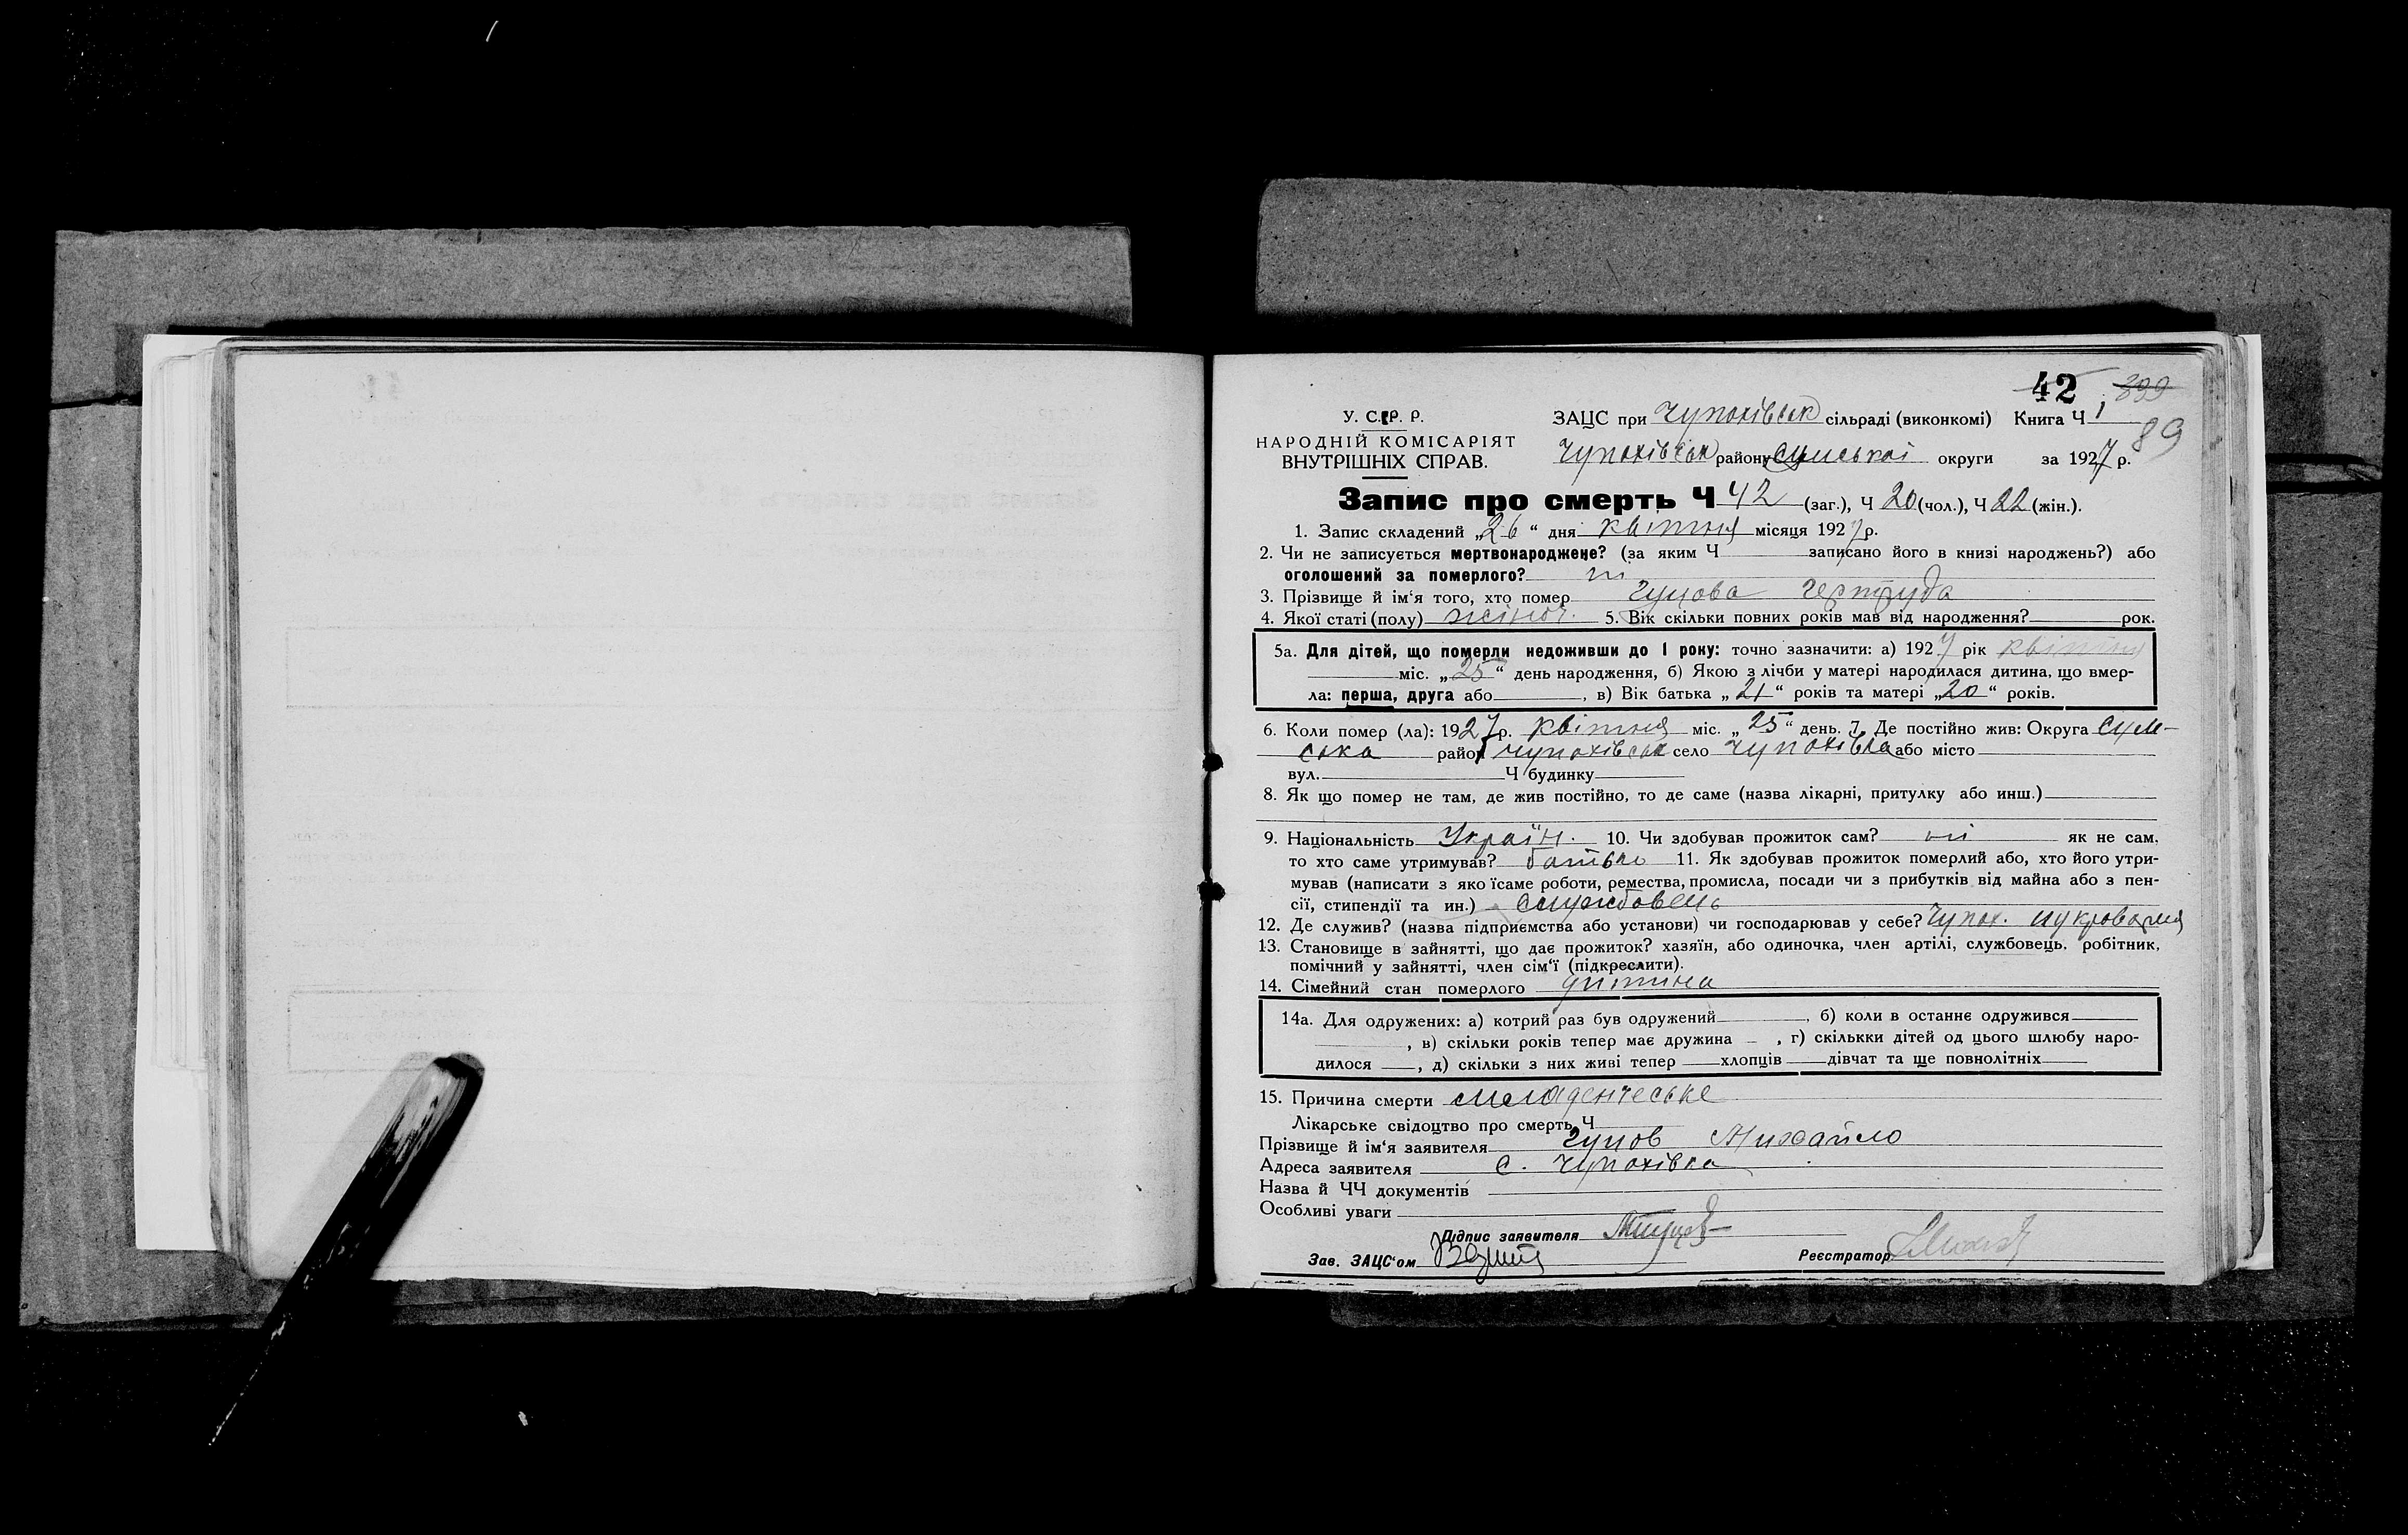 42 399
У. С. Р. Р. ЗАЦС при Чупахівськ сільраді (виконкомі) Книга Ч 1
89
НАРОДНІЙ КОМІСАРІЯТ
ВНУТРІШНІХ СПРАВ. Чупахівськ району Сумської округи за 1927 р.
Запис про смерть Ч 42 (заг.), Ч 20 (чол.), Ч 22 (жін.).
1. Запис складений „26“ дня квітня місяця 1927 р.
2. Чи не записується мертвонароджене? (за яким Ч записано його в книзі народжень?) або
оголошений за померлого? ні
3. Прізвище й ім‘я того, хто помер Гуцова Гертруда
4. Якої статі (полу) жіноч. 5. Вік скільки повних років мав від народження? рок.
5а. Для дітей, що померли недоживши до 1 року: точно зазначити: а) 1927 рік квітня
міс. „25“ день народження, б) Якою з лічби у матері народилася дитина, що вмер-
ла: перша, друга або , в) Вік батька „21“ років та матері „20“ років.
6. Коли помер (ла): 1927 р. квітня міс. „25“ день. 7. Де постійно жив: Округа Сум-
ська район Чупахівськ село Чупахівка або місто
вул. Ч будинку
8. Як що помер не там, де жив постійно, то де саме (назва лікарні, притулку або инш.)
9. Національність Україн. 10. Чи здобував прожиток сам? ні як не сам,
то хто саме утримував? батько 11. Як здобував прожиток померлий або, хто його утри-
мував (написати з яко їсаме роботи, ремества, промисла, посади чи з прибутків від майна або з пен-
сії, стипендії та ин.) службовець
12. Де служив? (назва підприємства або установи) чи господарював у себе? Чупах. цукроварня
13. Становище в зайнятті, що дає прожиток? хазяїн, або одиночка, член артілі, службовець, робітник,
помічний у зайнятті, член сім‘ї (підкреслити).
14. Сімейний стан померлого дитина
14а. Для одружених: а) котрий раз був одружений , б) коли в останнє одружився
, в) скільки років тепер має дружина , г) скількки дітей од цього шлюбу наро-
дилося , д) скільки з них живі тепер хлопців дівчат та ще повнолітніх
15. Причина смерти младенческе
Лікарське свідоцтво про смерть Ч
Прізвище й ім‘я заявителя Гуцов Михайло
Адреса заявителя с. Чупахівка
Назва й ЧЧ документів
Особливі уваги
Підпис заявителя
Зав. ЗАЦС‘ом Реєстратор